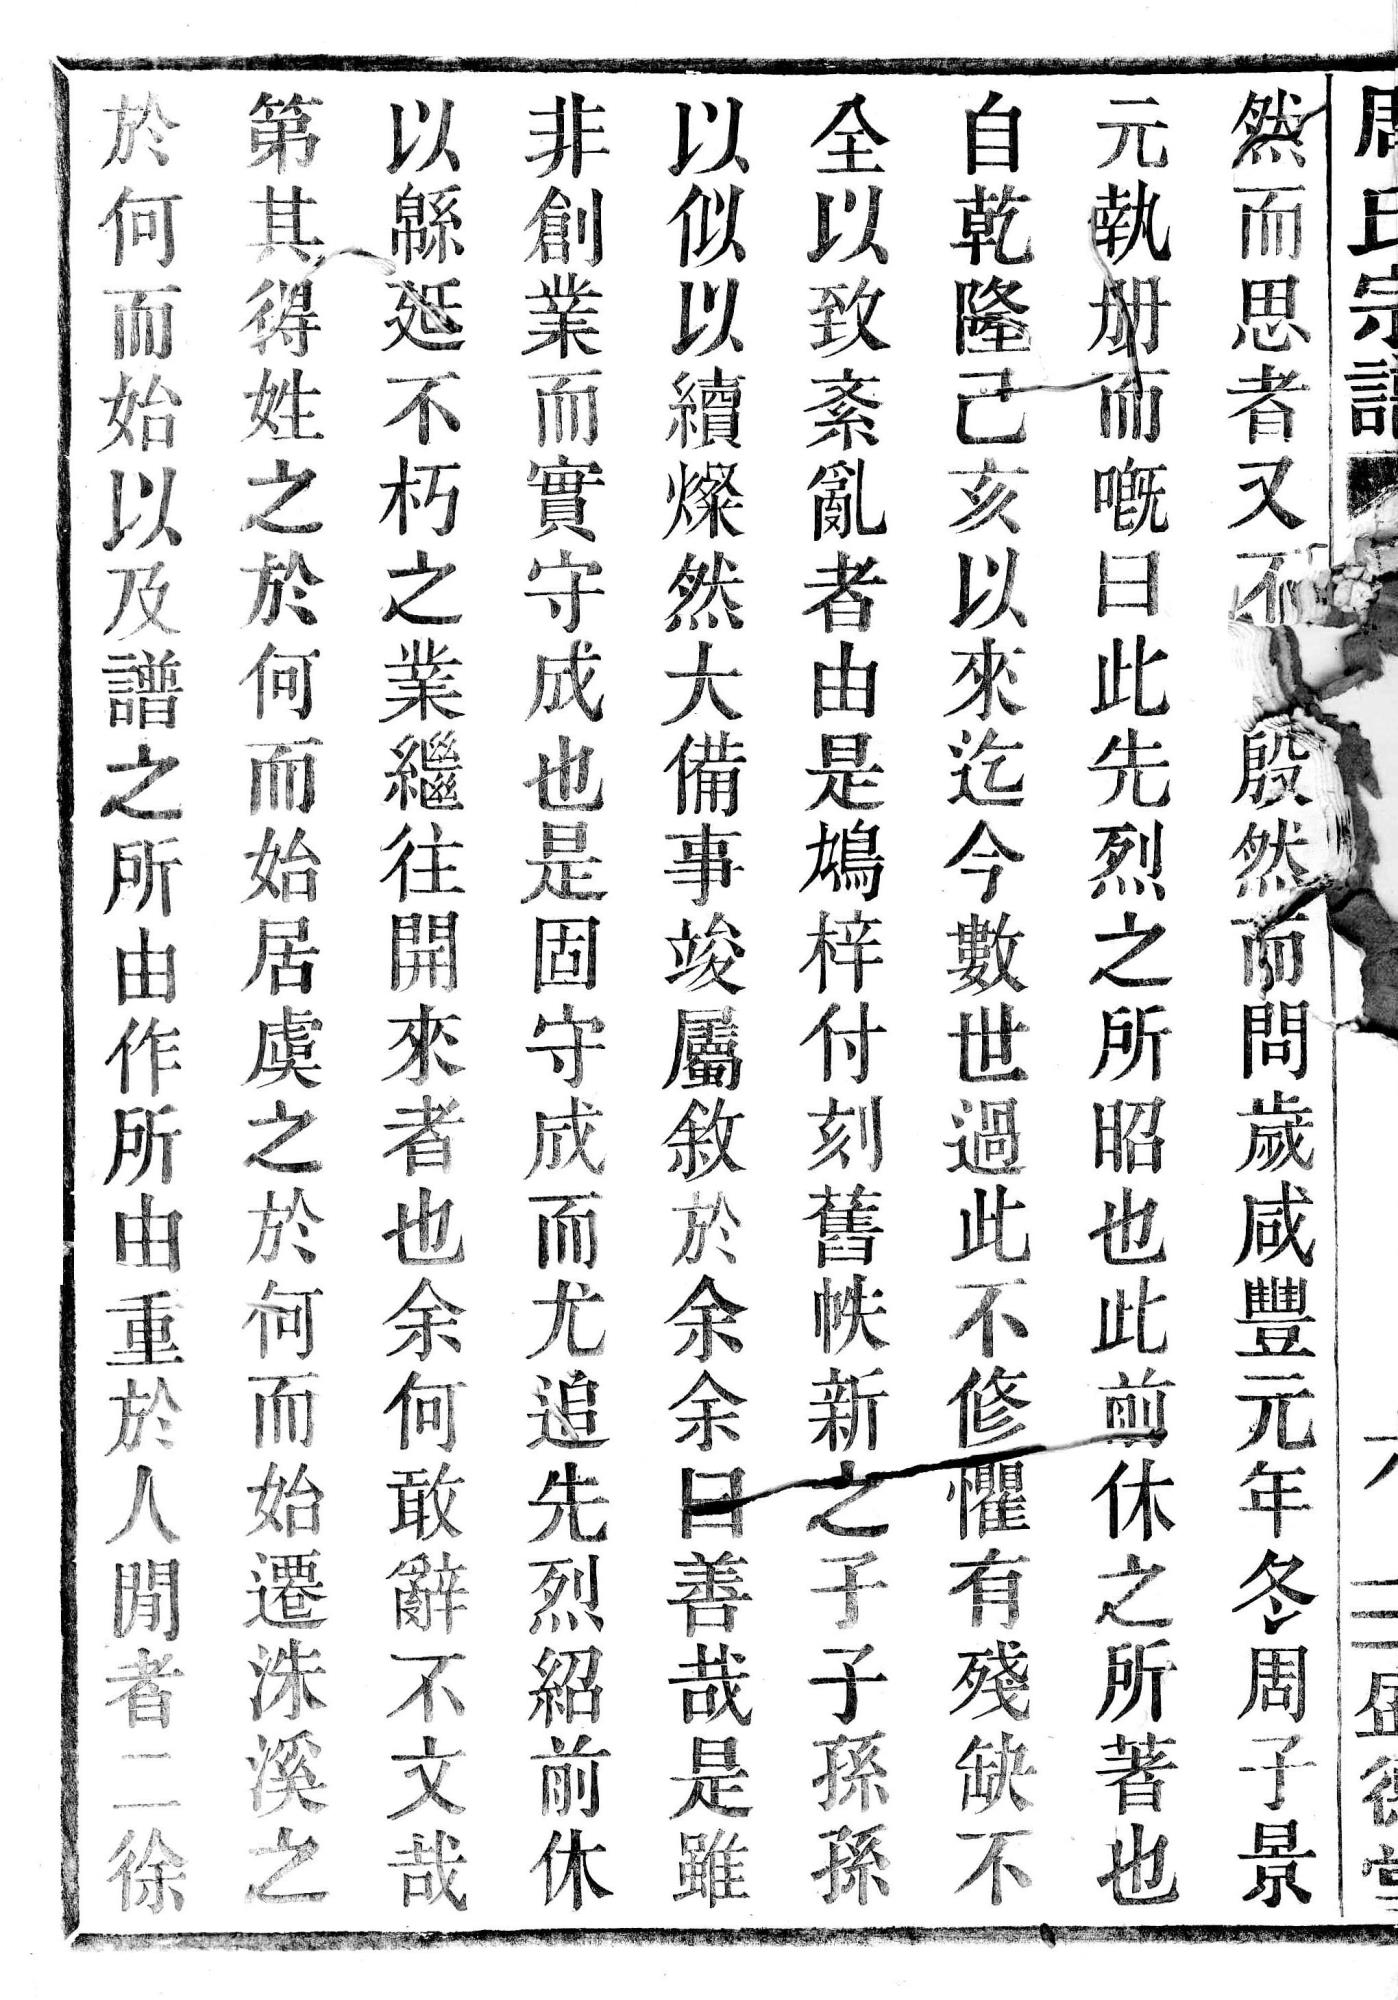 周氏宗譜 六 三 盛德堂
然而思者又不殷然而問歲咸豐元年冬周子景
元執册而嘅曰此先烈之所昭也此前休之所著也
自乾隆己亥以來迄今數世過此不修懼有殘缺不
全以致紊亂者由是鳩梓付刻舊帙新之子子孫孫
以似以續燦然大備事竣屬敘於余余曰善哉是雖
非創業而實守成也是固守成而尤追先烈紹前休
以緜延不朽之業繼往開來者也余何敢辭不文哉
第其得姓之於何而始居虞之於何而始遷洙溪之
於何而始以及譜之所由作所由重於人閒者二徐